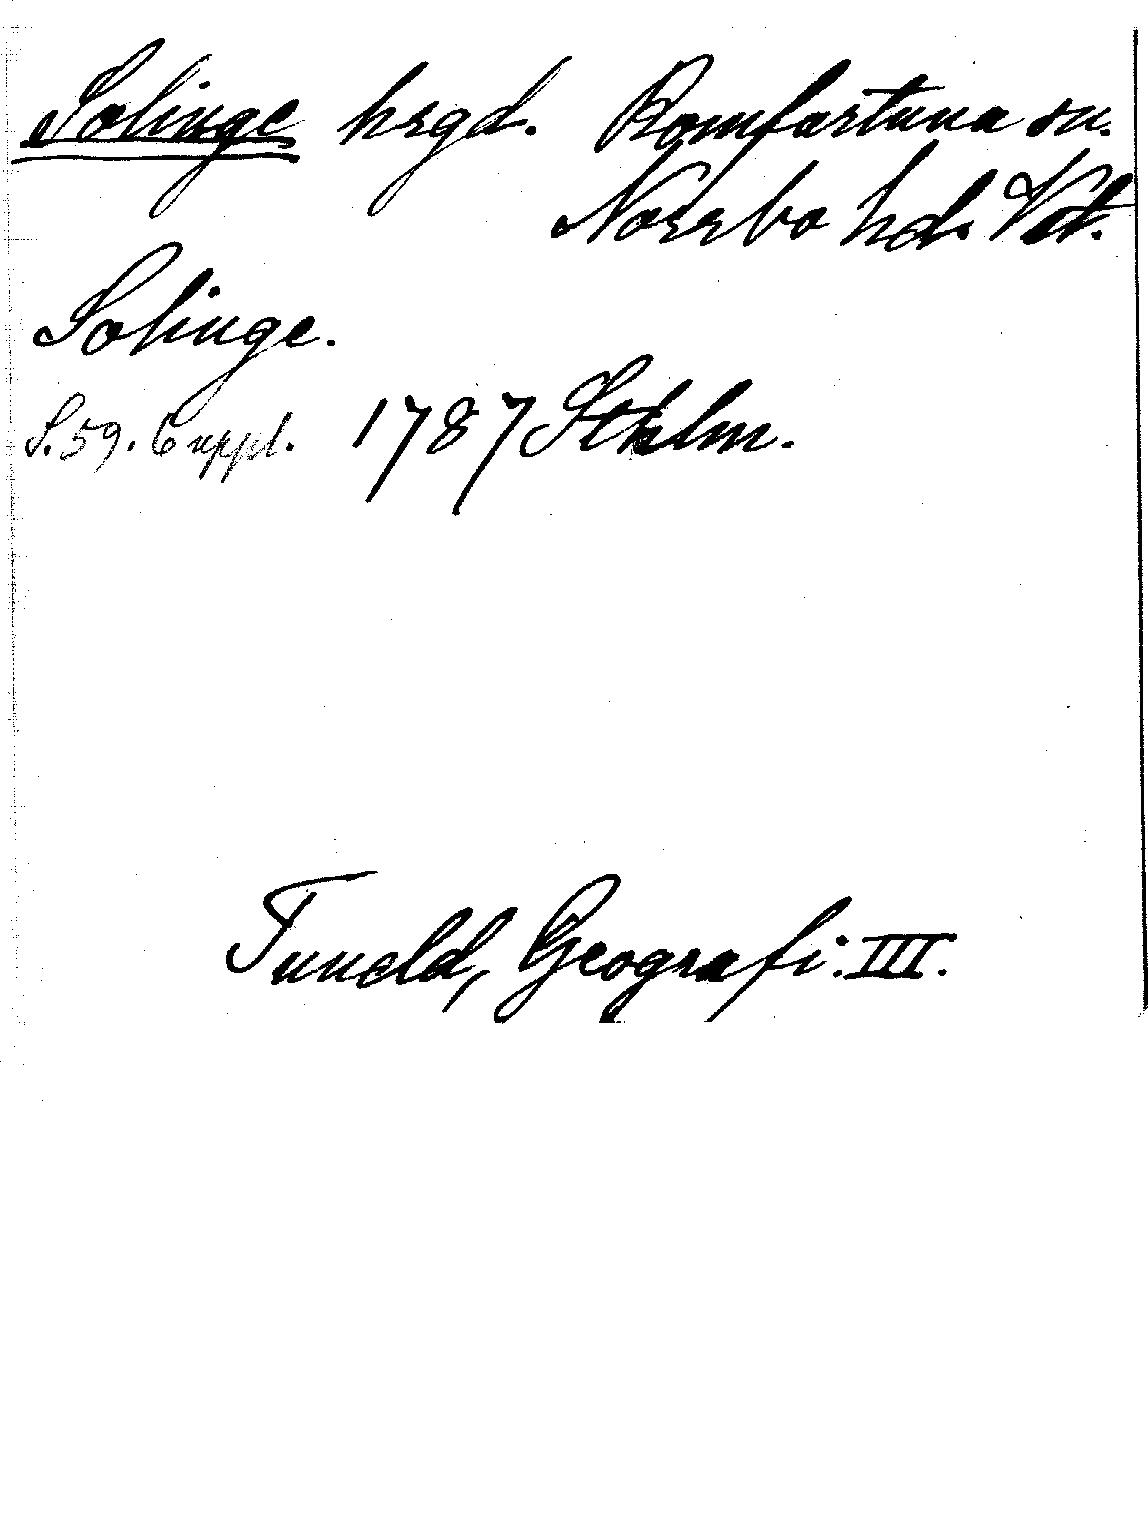 Solinge hrgd. Romfartuna sn.
Norrbo hd. Vstl.
Solinge.
S. 59. 6 uppl. 1787 Sthlm.
Tuneld, Geografi. III.